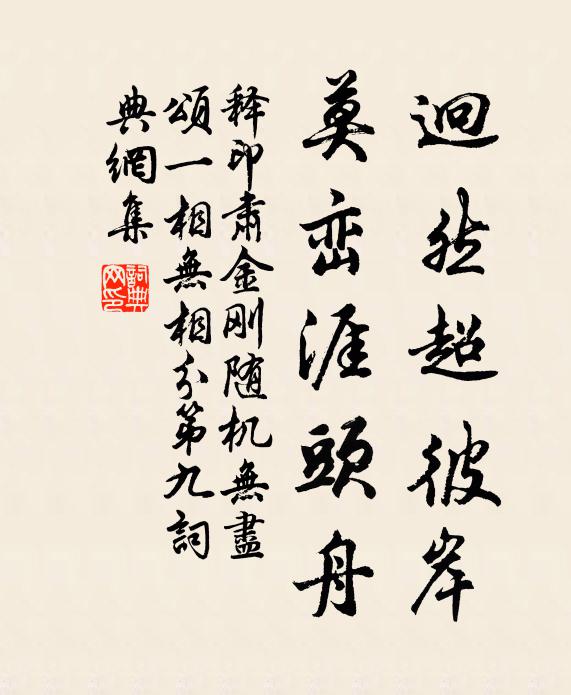 迥然超彼岸
莫峦涯頭舟
释印肃金刚随机無盡
頌一相無相分第九詞
典網集
詞典
网印